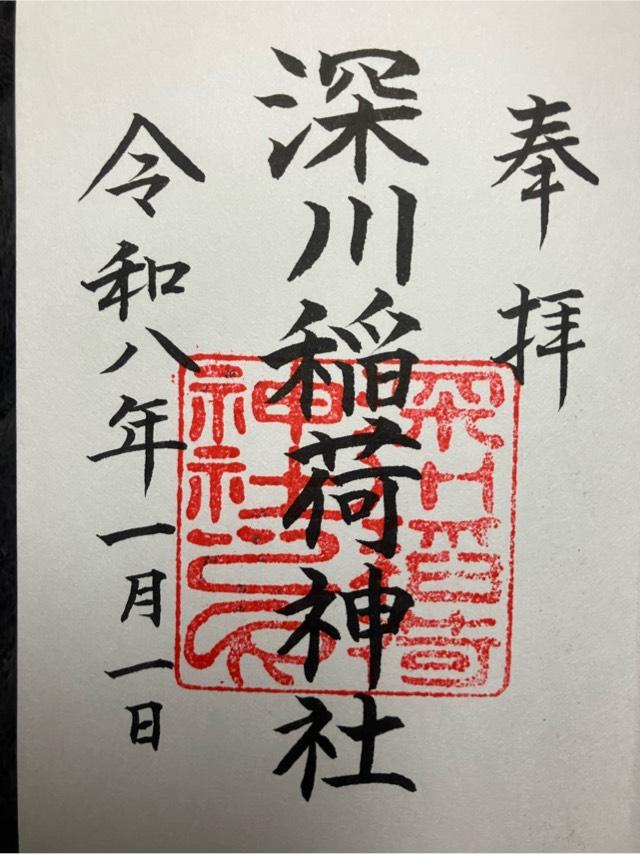 奉拝
深川稲荷神社
令和八年一月一日
深川稲荷
神社之印